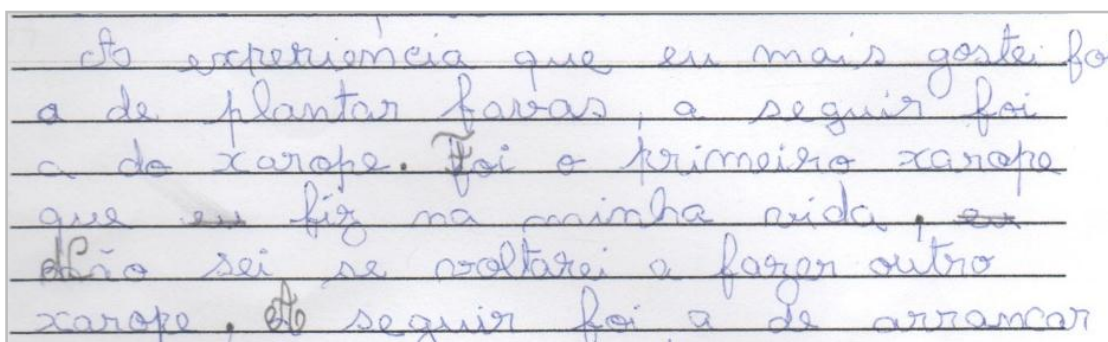 A experiência que eu mais gostei foi
a de plantar favas, a seguir foi
a do xarope. Foi o primeiro xarope
que eu fiz na minha vida, eu
Não sei se voltarei a fazer outro
xarope. A seguir foi a de arrancar